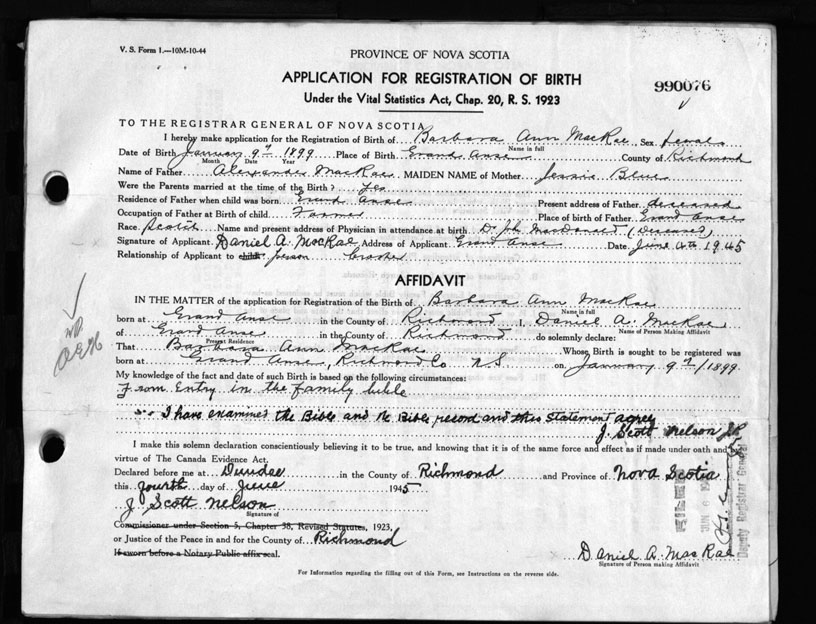 V. S. Form 1.—10M-10-44
PROVINCE OF NOVA SCOTIA
APPLICATION FOR REGISTRATION OF BIRTH
990076
Under the Vital Statistics Act, Chap. 20, R. S. 1923
TO THE REGISTRAR GENERAL OF NOVA SCOTIA
I hereby make application for the Registration of Birth of Barbara Ann MacRae Sex female
Name in full
Date of Birth January 9th 1899 Place of Birth Grand Anse County of Richmond
Month Date Year
Name of Father Alexander MacRae MAIDEN NAME of Mother Jessie Blue
Were the Parents married at the time of the Birth? yes
Residence of Father when child was born Grand Anse Present address of Father deceased
Occupation of Father at Birth of child Farmer Place of birth of Father Grand Anse
Race Scotch Name and present address of Physician in attendance at birth Dr John MacDonald (Deceased)
Signature of Applicant Daniel A. MacRae Address of Applicant Grand Anse Date June 4th 1945
Relationship of Applicant to child person brother
AFFIDAVIT
IN THE MATTER of the application for Registration of the Birth of Barbara Ann MacRae
Name in full
born at Grand Anse in the County of Richmond I, Daniel A. MacRae
Name of Person Making Affidavit
of Grand Anse in the County of Richmond do solemnly declare:
Present Residence
That Barbara Ann MacRae Whose Birth is sought to be registered was
born at Grand Anse, Richmond Co N.S on January 9th 1899
My knowledge of the fact and date of such Birth is based on the following circumstances:
From Entry in the family bible
I have examined the Bible and the Bible record and this statement agree
J. Scott Nelson J.P
I make this solemn declaration conscientiously believing it to be true, and knowing that it is of the same force and effect as if made under oath and by
virtue of The Canada Evidence Act.
Declared before me at Dundee in the County of Richmond and Province of Nova Scotia
this fourth day of June 1945
J Scott Nelson
Signature of
Commissioner under Section 5, Chapter 38, Revised Statutes, 1923,
or Justice of the Peace in and for the County of Richmond
If sworn before a Notary Public affix seal.
Daniel A. MacRae
Signature of Person making Affidavit
Deputy Registrar General
For Information regarding the filling out of this Form, see Instructions on the reverse side.